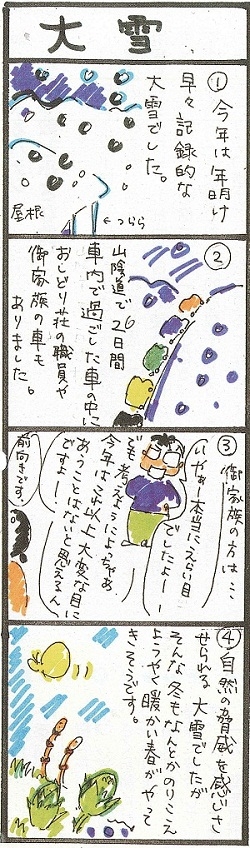 大雪
①今年は年明け
早々記録的な
大雪でした。
屋根
←つらら
②
山陰道で2日間
車内で過ごした車の中に
おしどり荘の職員や
御家族の車も
ありました。
③御家族の方は…
いやぁー本当にえらい目
でしたよー
でも考えようによっちゃあ
今年はこれ以上大変な目に
あうことはないと思えるん
ですよー
前向きです。
④自然の脅威を感じさ
せられる大雪でしたが
そんな冬もなんとかのりこえ
ようやく暖かい春がやって
きそうです。